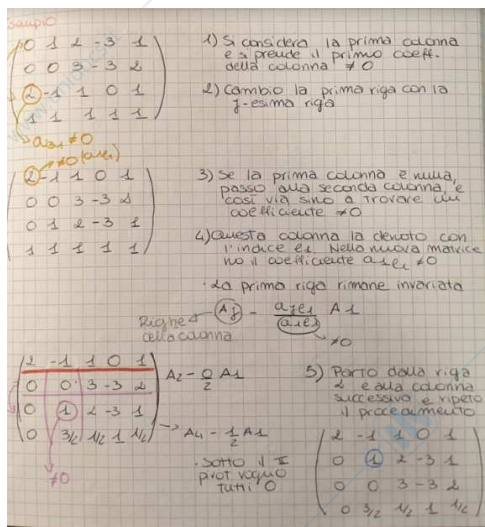 Esempio
0 1 2 -3 1
0 0 3 -3 2
2 -1 1 0 1
1 1 1 1 1
a31 ≠ 0
1) Si considera la prima colonna
e si prende il primo coeff.
della colonna ≠ 0
2) Cambio la prima riga con la
j-esima riga
≠0 (a1e1)
2 -1 1 0 1
0 0 3 -3 2
0 1 2 -3 1
1 1 1 1 1
3) Se la prima colonna è nulla,
passo alla seconda colonna, e
così via sino a trovare un
coefficiente ≠0
4) Questa colonna la denoto con
l'indice e1. Nella nuova matrice
ho il coefficiente a1e1 ≠0
· La prima riga rimane invariata
Righe
della colonna
Aj - aje1/a1e1 A1
≠0
2 -1 1 0 1
0 0 3 -3 2
0 1 2 -3 1
0 3/2 1/2 1 1/2
A2 - 0/2 A1
A4 - 1/2 A1
≠0
· Sotto il II
pivot voglio
tutti 0
5) Parto dalla riga
2 e alla colonna
successiva e ripeto
il procedimento
2 -1 1 0 1
0 1 2 -3 1
0 0 3 -3 2
0 3/2 1/2 1 1/2